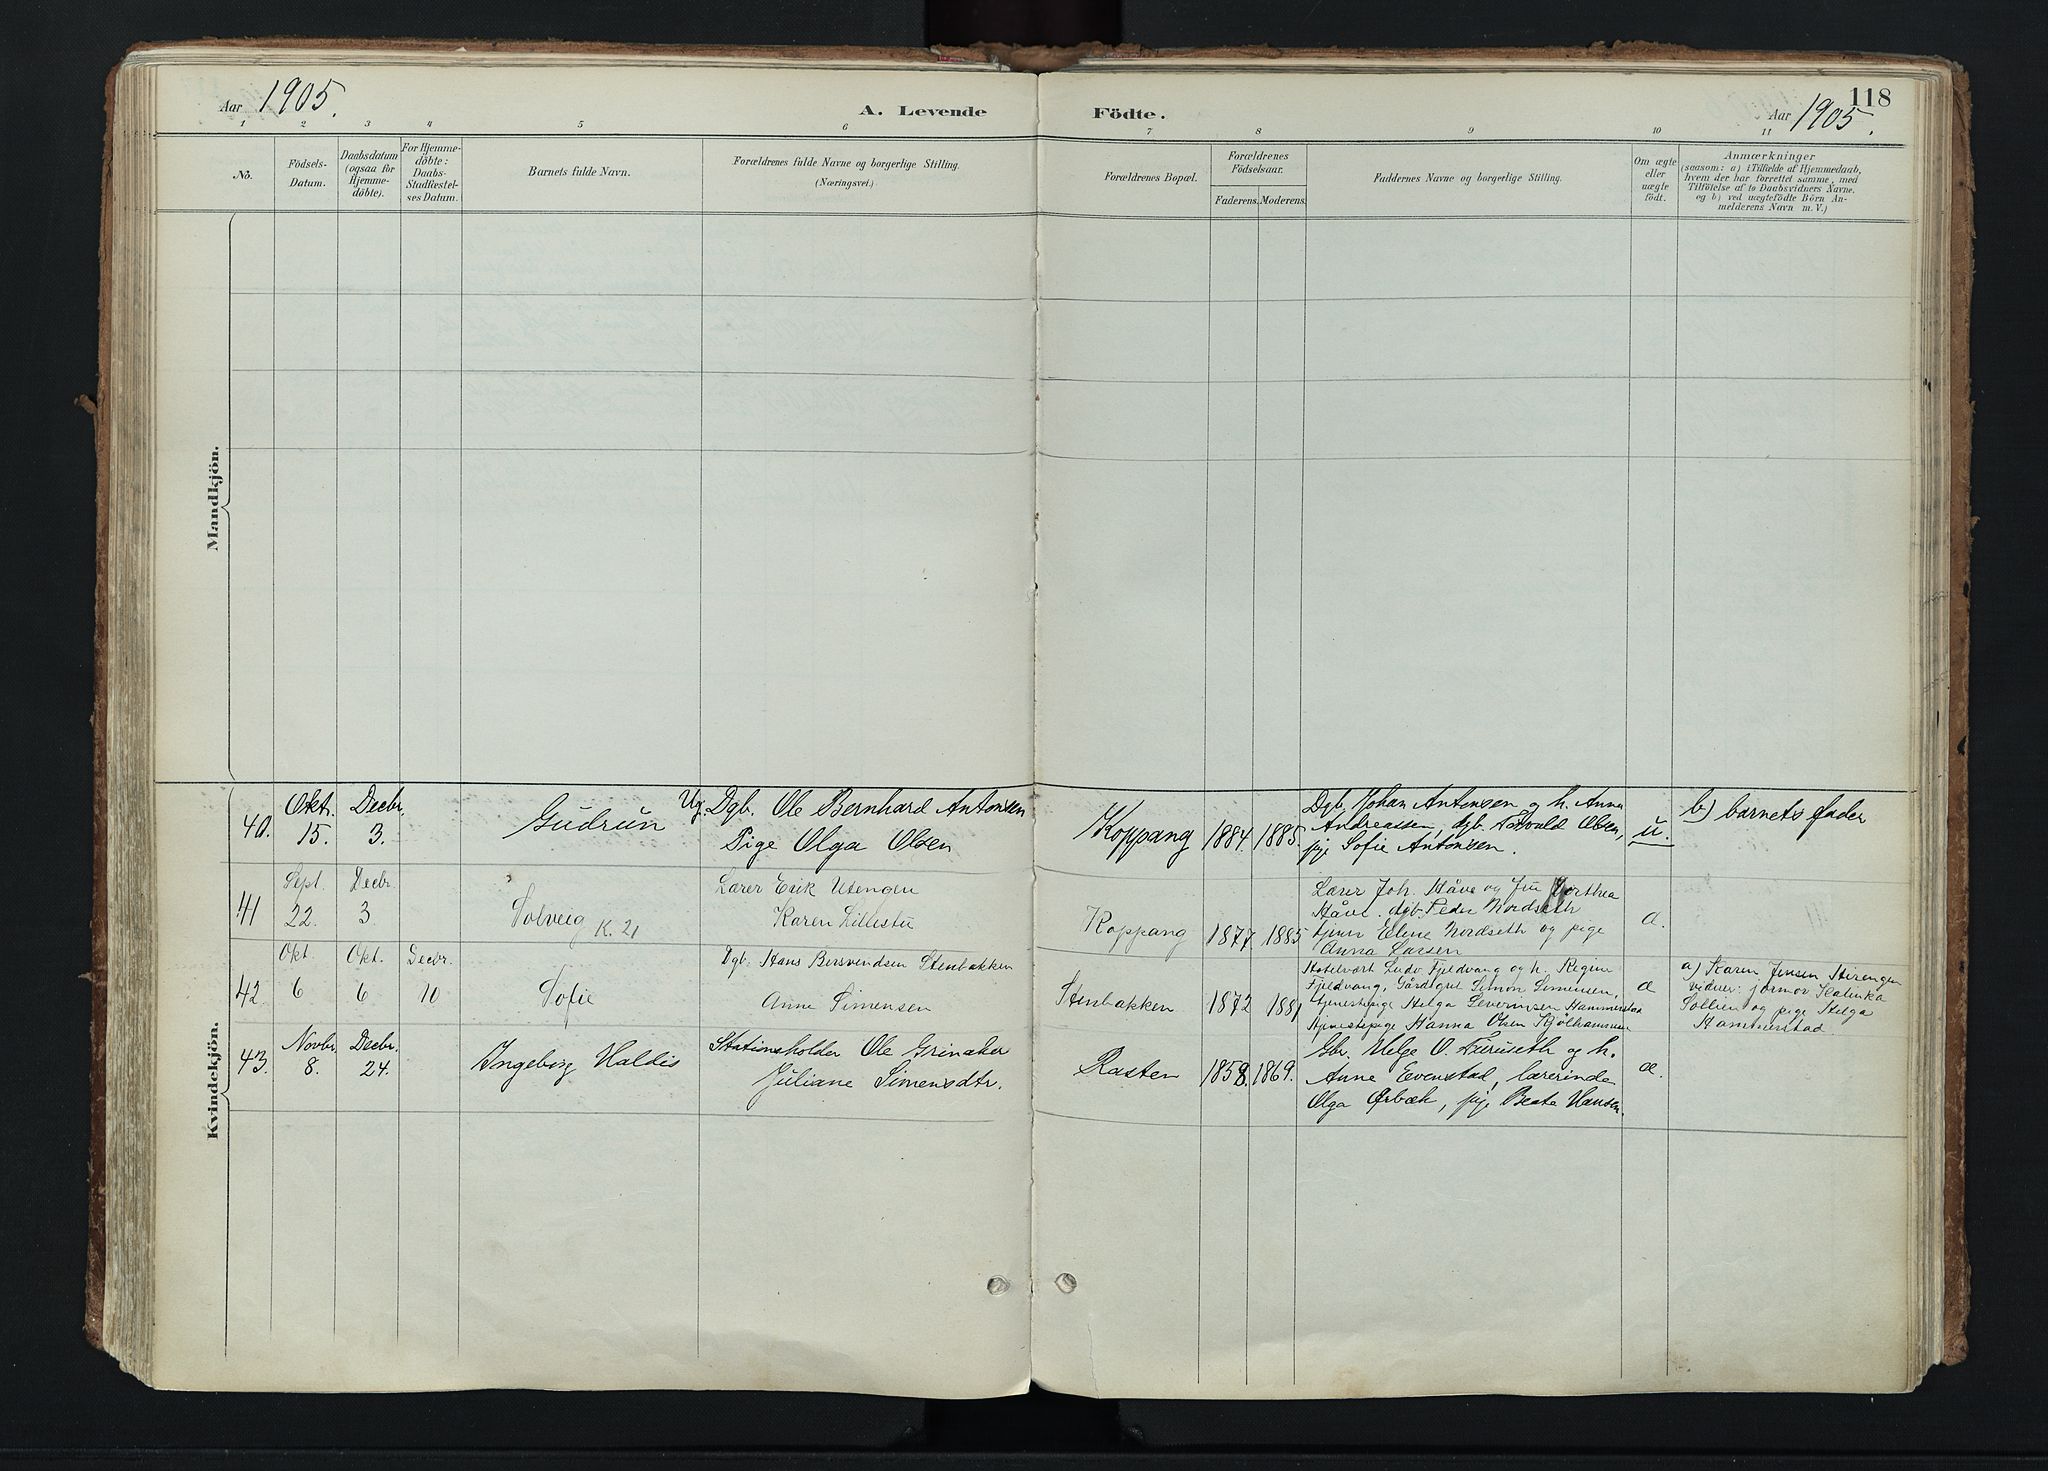 118
Aar 1905.
A. Levende Födte.
Aar 1905.
1 2 3 4 5 6 7 8 9 10 11
No.
Födsels-
Datum.
Daabsdatum
(ogsaa for
Hjemme-
döbte).
For Hjemme-
döbte:
Daabs-
Stadfæstel-
ses Datum.
Barnets fulde Navn.
Forældrenes fulde Navne og borgerlige Stilling.
(Næringsvei.)
Forældrenes Bopæl.
Forældrenes
Födselsaar.
Faderens. Moderens.
Faddernes Navne og borgerlige Stilling.
Om ægte
eller
uægte
født.
Anmærkninger
(saasom: a) i Tilfælde af Hjemmedaab,
hvem der har forrettet samme, med
Tilföielse af to Daabsvidners Navne.
og b) ved uægtefödte Börn An-
melderens Navn m. V.)
Mandkjön.
Kvindekjön.
40.
Okt.
15.
Decbr.
3.
Gudrun
Ug. Dgb. Ole Bernhard Antonsen
Pige Olga Olsen
Koppang
1884. 1885.
Dgb. Johan Antonsen og h. Anna
Andreassen, dgb. Torvald Olsen,
pige Sofie Antonsen.
u.
b) barnets fader
41
Sept.
22.
Decbr.
3.
Solveig K. 21
Lærer Erik Utengen
Karen Lillestu
Koppang
1877 1885.
Lærer Joh. Håve og Fru Dorthea
Håve. dgb. Peder Nordseth
Elene Nordseth og pige
Anna Larsen
æ.
42.
Okt.
6
Okt.
6
Decbr.
10
Sofie
Dgb. Hans Bersvendsen Stenbakken
Anne Simensen
Stenbakken
1872 1881
Hotelvært Ludv. Fjeldvang og h. Regine
Fjeldvang, Gårdbr. Simon Simensen,
Tjenestepige Helga Severinsen Hammerstad
Tjenestepige Hanna Olsen Kjølhamum
æ
a) Karen Jensen Stirengen
vidner: jormor Katinka
Sollien og pige Helga
Hammerstad
43.
Novbr.
8.
Decbr.
24.
Ingeborg Haldis
Stationsholder Ole Grinaker
Juliane Simensdtr.
Rasten
1858. 1869.
Gbr. Helge O. Furuseth og h.
Anne Evenstad, lærerinde
Olga Ørbæk, pige Beate Hansen.
æ.